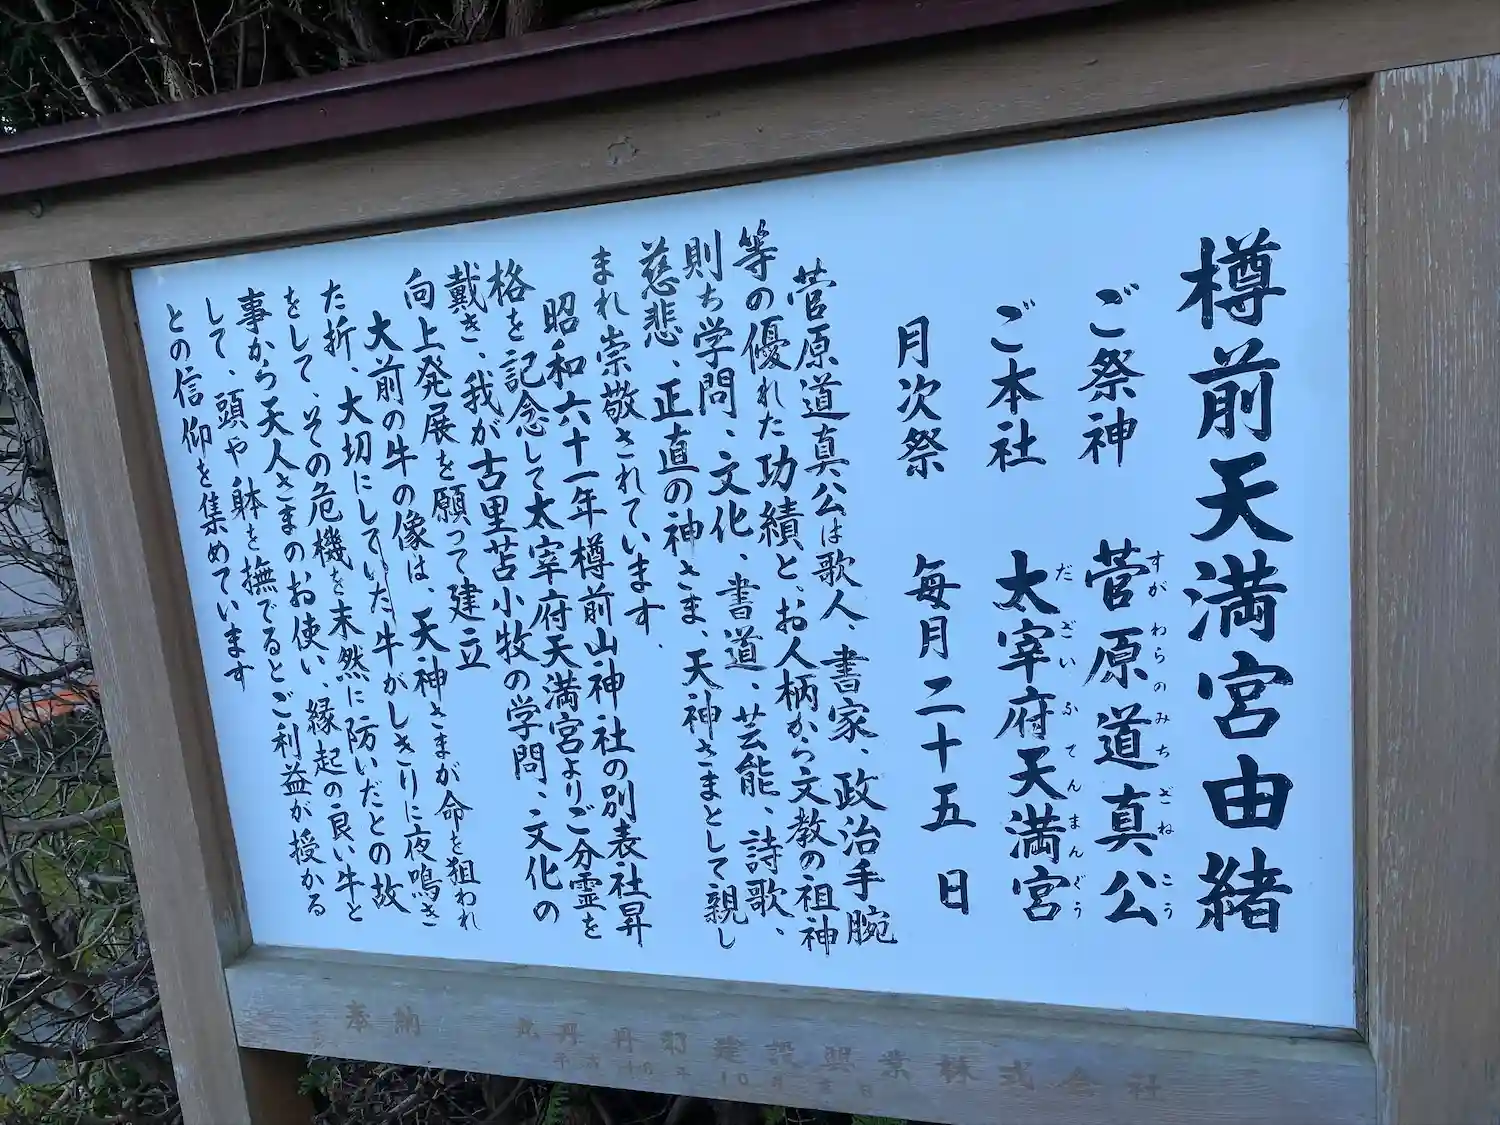 樽前天満宮由緒
ご祭神　菅原道真公
すがわらのみちざねこう
ご本社　太宰府天満宮
だざいふてんまんぐう
月次祭　毎月二十五日
菅原道真公は歌人、書家、政治手腕
等の優れた功績と、お人柄から文教の祖神
則ち学問、文化、書道、芸能、詩歌、
慈悲、正直の神さま、天神さまとして親し
まれ崇敬されています.
昭和六十一年樽前山神社の別表社昇
格を記念して太宰府天満宮よりご分霊を
戴き、我が古里苫小牧の学問、文化の
向上発展を願って建立
大前の牛の像は、天神さまが命を狙われ
た折、大切にしていた牛がしきりに夜鳴き
をして、その危機を未然に防いだとの故
事から天人さまのお使い、縁起の良い牛と
して、頭や躰を撫でるとご利益が授かる
との信仰を集めています
奉納　丹菊建設興業株式会社